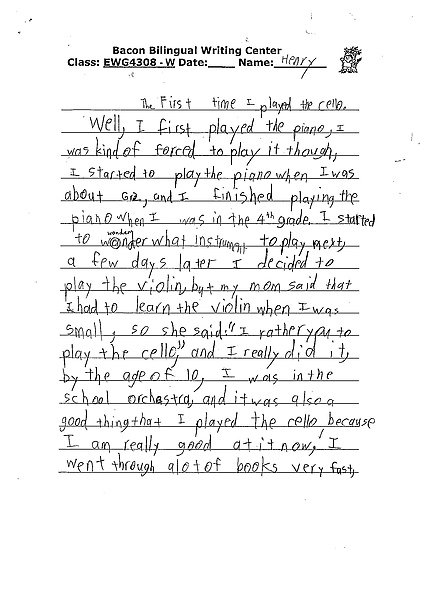 Bacon Bilingual Writing Center
Class: EWG4308 - W Date:____ Name: Henry
The First time I played the cello.
Well, I first played the piano, I
was kind of forced to play it though,
I started to play the piano when I was
about G2, and I finished playing the
piano when I was in the 4th grade. I started
wonder
to wonder what instrument to play next,
a few days later I decided to
play the violin, but my mom said that
I had to learn the violin when I was
small, so she said:"I rather you to
play the cello," and I really did it,
by the age of 10, I was in the
school orchastra, and it was also a
good thing that I played the cello because
I am really good at it now, I
went through alot of books very fast,